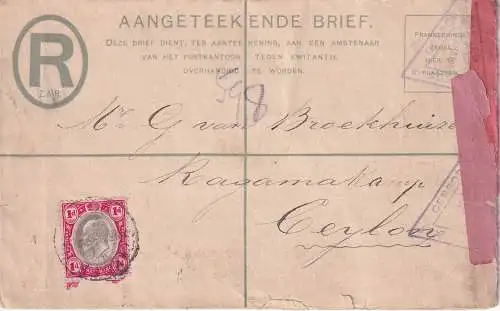 AANGETEEKENDE BRIEF.
DEZE BRIEF DIENT, TER AANTEEKENING, AAN EEN AMBTENAAR
VAN HET POSTKANTOOR TEGEN KWITANTIE
OVERHANDIGD TE WORDEN.
R
Z.A.R.
598
Mr G van Broekhuize
Ragama Kamp
Ceylon
1d 1d
1d 1d